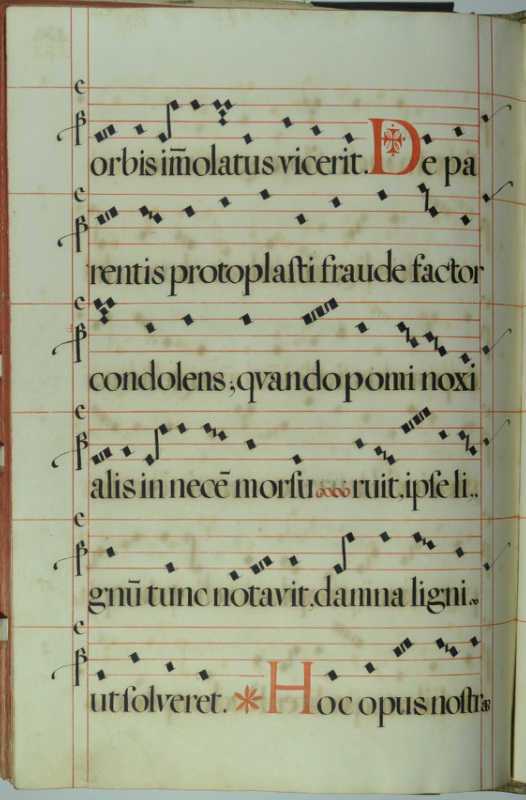 orbis im̃olatus vicerit. De pa
rentis protoplaſti fraude factor
condolens, qvando pomi noxi
alis in necẽ morſu ruit, ipſe li,,
gnũ tunc notavit, damna ligni
ut ſolveret. * Hoc opus noſtræ